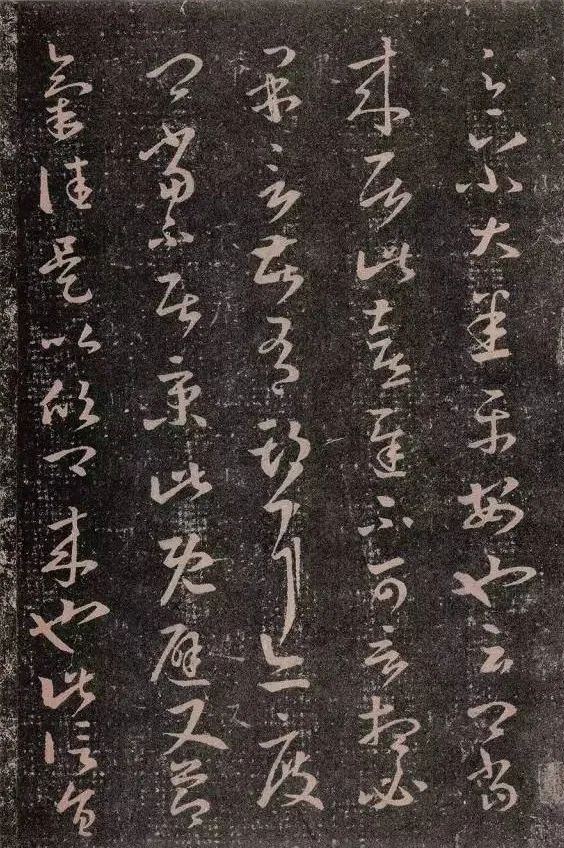 足下小大悉平安也云卿當
來居此喜遲不可言想必
果言苦有期耳亦度
卿當不居京此既避又節
氣佳是以欣卿來也此信旨